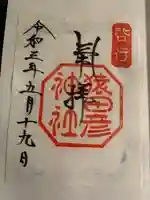 啓行
奉拝
猿田彦
神社
令和三年五月十九日